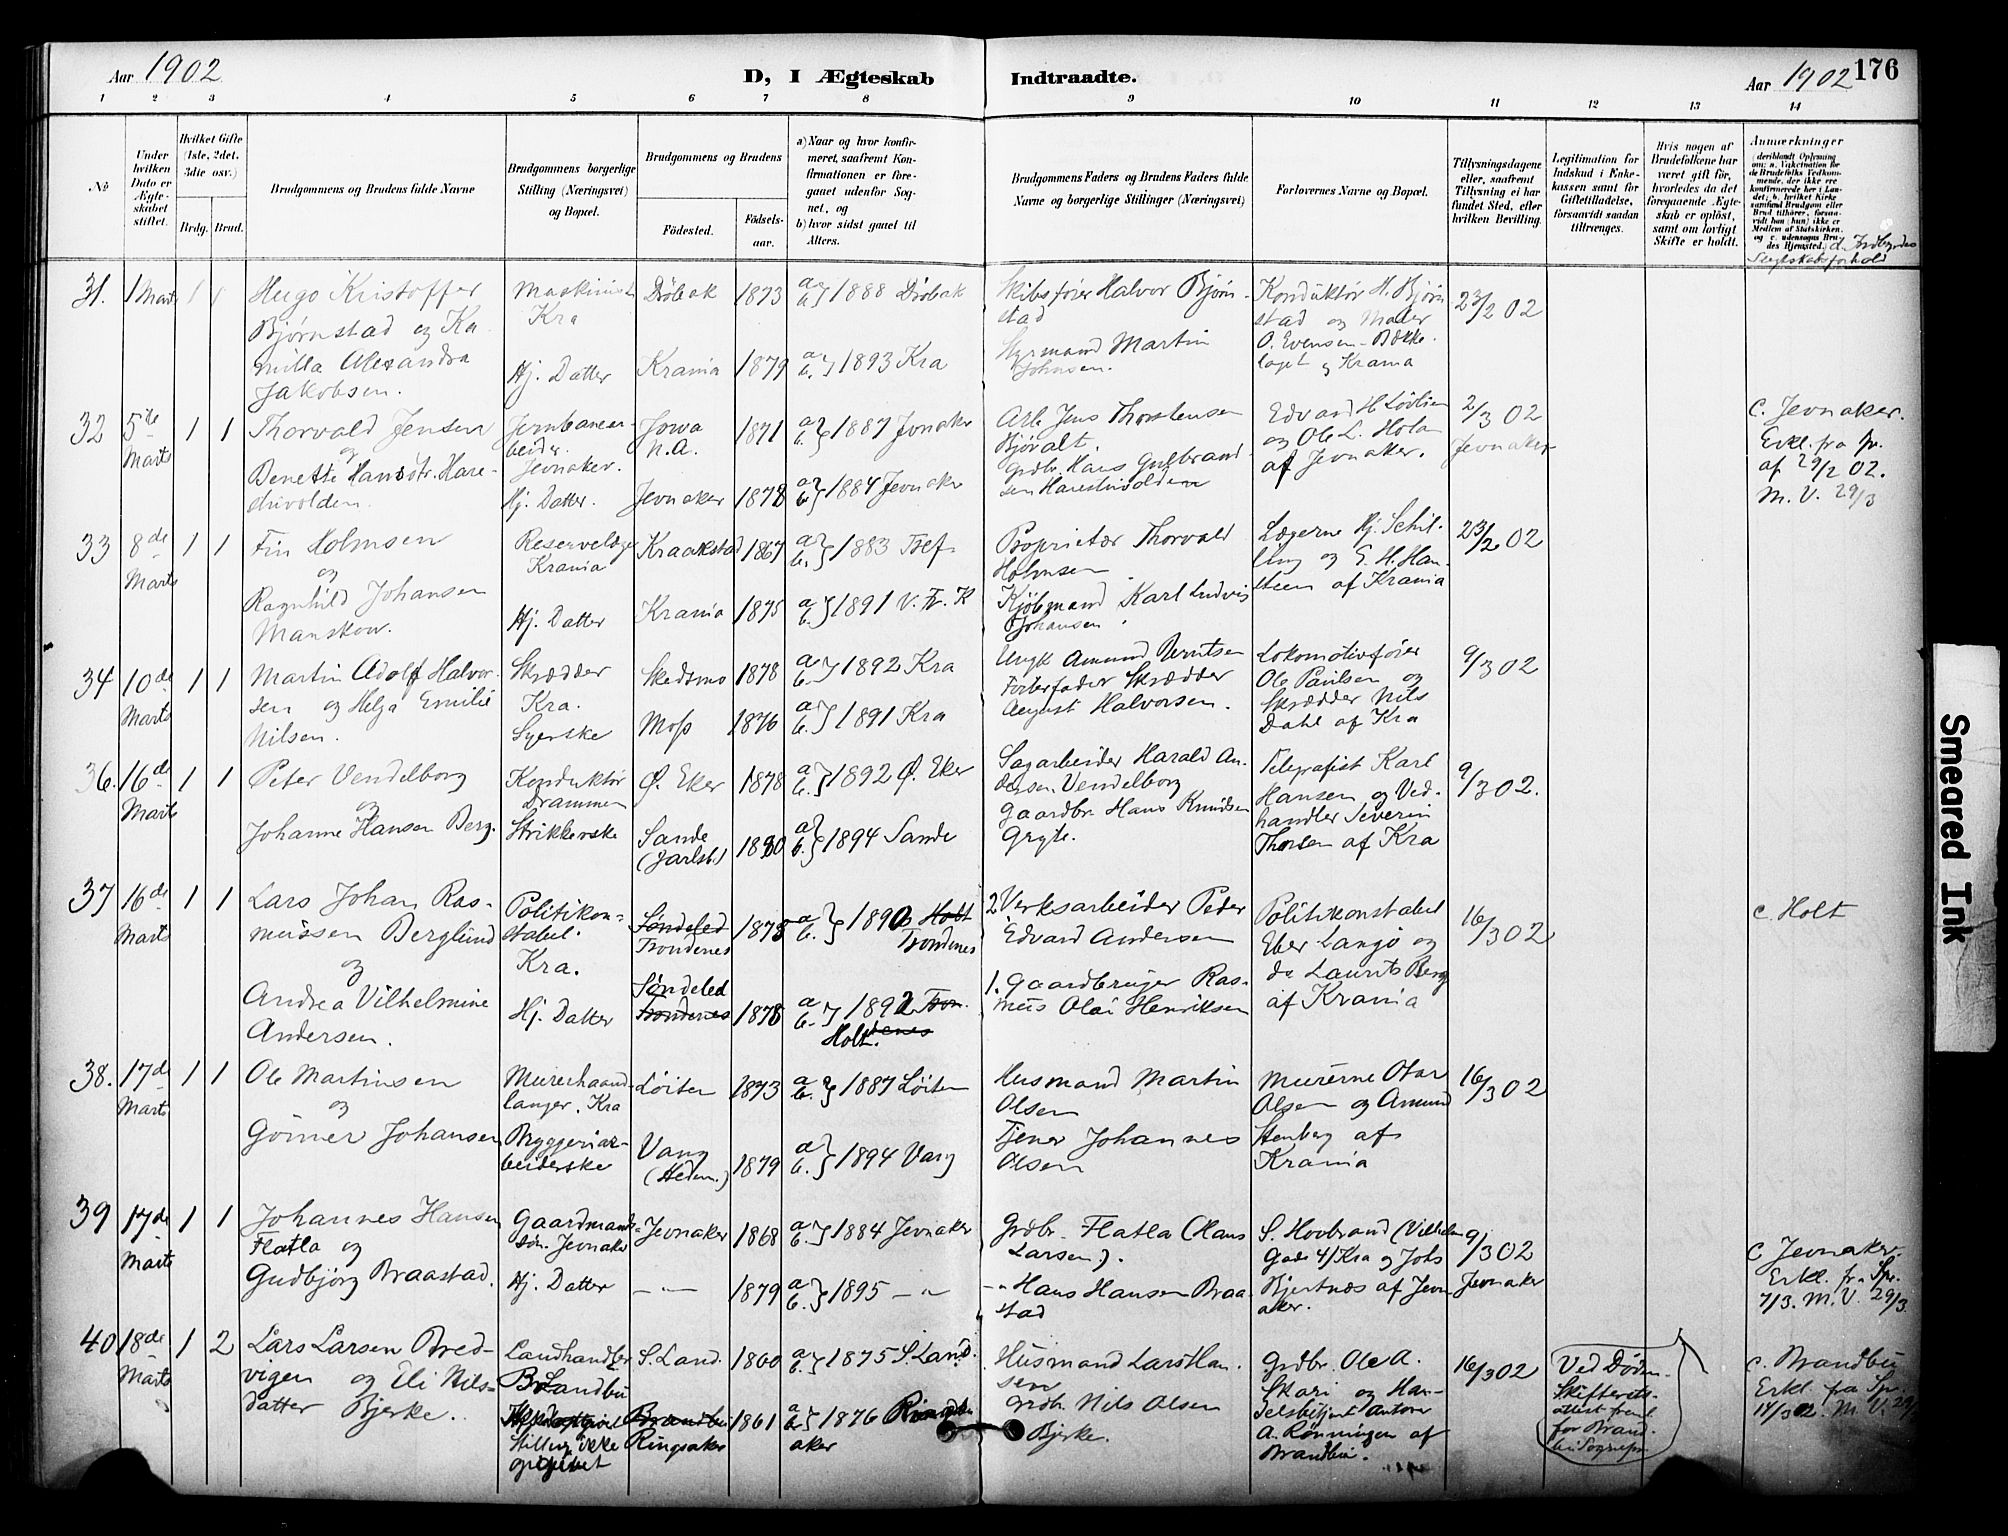 Aar 1902
D, I Ægteskab
Indtraadte.
Aar 1902 176
1 2 3 4 5 6 7 8 9 10 11 12 13 14
No
Under hvilken Dato er Ægteskabet stiftet.
Hvilket Gifte (1ste, 2det, 3die osv.)
Brdg. Brud.
Brudgommens og Brudens fulde Navne
Brudgommens borgerlige Stilling (Næringsvei) og Bopæl.
Brudgommens og Brudens
Fødested.
Fødselsaar.
a) Naar og hvor konfirmeret, saafremt Konfirmationen er foregaaet udenfor Sognet, og
b) hvor sidst gaaet til Alters.
Brudgommens Faders og Brudens Faders fulde Navne og borgerlige Stillinger (Næringsvei)
Forlovernes Navne og Bopæl.
Tillysningsdagene eller, saafremt Tillysning ei har fundet Sted, efter hvilken Bevilling.
Legitimation for Indskud i Enkekassen samt for Giftetilladelse, forsaavidt saadan tiltrænges.
Hvis nogen af Brudefolkene har været gift før, hvorledes da det foregaaende Ægteskab er opløst, samt om lovligt Skifte er holdt.
Anmærkninger
31. 1 Marts 1 1
Hugo Kristoffer
Bjørnstad og Ka
milla Alexandra
Jakobsen.
Maskinist
Kra
Hj. Datter
Drøbak 1873 a b } 1888 Drøbak
Krania 1879 a b } 1893 Kra
Skibsfører Halvor Bjørn
stad
Styrmand Martin
Johnsen.
Konduktør H. Bjørn
stad og Maler
O. Evensen - Bække
laget og Krania
23/2 02
32 5te Marts 1 1
Thorvald Jensen
og
Benette Hansdtr. Hare
stuvolden
Jernbanear-
beider.
Jevnaker.
Hj. Datter.
Jowa
N.A. 1871 a b } 1887 Jevnaker
Jevnaker 1878 a b } 1884 Jevnaker
Arb. Jens Thorstensen
Bjøralt.
Grdbr. Hans Gulbrand
sen Harestuvolden
Edvard H. Løvlien
og Ole L. Hola
af Jevnaker.
2/3 02
Jevnaker
C. Jevnaker.
Erkl. fra Spr.
af 29/2 02.
M. V. 29/3
33 8de Marts 1 1
Fin Holmsen
og
Ragnhild Johansen
Manskow.
Reservelæge
Krania
Hj. Datter
Kraakstad 1867 a b } 1883
Krania 1875 a b } 1891 V. Fr. K
Proprietær Thorvald
Holmsen
Kjøbmand Karl Ludvig
Johansen.
Lægerne Hj. Schil-
ling og G. H. Han-
steen af Krania
23/2 02
34 10de Marts 1 1
Martin Adolf Halvor
sen og Helga Emilie
Nilsen.
Skrædder
Kra.
Syerske
Skedsmo 1878 a b } 1892 Kra
Moss 1876 a b } 1891 Kra
Ungk Amund Berntsen
Forterfader Skrædder
August Halvorsen.
Lokomotivfører
Ole Paulsen og
Skrædder Nils
Dahl af Kra
9/3 02
36. 16de Marts 1 1
Peter Vendelborg
og
Johanne Hansen Berg.
Konduktør
Drammen
Strikkerske
Ø. Eker 1878 a b } 1892 Ø. Eker
Sande
(Jarlsb.) 1880 a b } 1894 Sande
Sagarbeider Harald An
dersen Vendelborg
Gaardbr. Hans Knudsen
Gryte.
Telegrafist Karl
Hansen og Ved-
handler Severin
Thorsen af Kra
9/3 02.
37 16de Marts 1 1
Lars Johan Ras-
mussen Berglund
og
Andrea Vilhelmine
Andersen.
Politikon-
stabel.
Kra.
Hj. Datter
Søndeled
Trondenes 1878 a b } 1890 Holt
Trondenes
Søndeled
Trondenes 1878 a b } 1892 Tron-
denes
Holt.
2 Verksarbeider Peder
Edvard Andersen
1. Gaardbruger Ras-
mus Olai Henriksen
Politikonstabel
Eber Langjo og
do Laurits Berg
af Krania
16/3 02
C. Holt
38. 17de Marts 1 1
Ole Martinsen
og
Gøiner Johansen
Murerhaand-
langer. Kra
Bryggeriar-
beiderske
Løiten 1873 a b } 1887 Løiten
Vang
(Hedem.) 1879 a b } 1894 Vang
Husmand Martin
Olsen
Tjener Johannes
Olsen
Murerne Otar
Olsen og Amund
Stenberg af
Krania
16/3 02
39 17de Marts 1 1
Johannes Hansen
Flatla og
Gudbjørg Braastad.
Gaardmands-
søn. Jevnaker
Hj. Datter
Jevnaker 1868 a b } 1884 Jevnaker
— " — 1879 a b } 1895 — " —
Grdbr. Flatla (Hans
Larsen).
— " Hans Hansen Braa
stad
S. Hovbrand (Vilhelm
Gade 4) Kra og Johs
Bjertnæs af Jevn
aker.
9/3 02
Jevnaker
C Jevnaker.
Erkl. fra Spr.
7/3. M. V. 29/3.
40 18de Marts 1 2
Lars Larsen Bred-
vigen og Eli Nils-
datter Bjerke.
Landhandler
Brandbu
Stilling ikke
opgivet
S. Land. 1860 a b } 1875 S. Land.
Brandbu
Ringsaker 1861 a b } 1876 Rings
aker
Husmand Lars Han-
sen
Grdb. Nils Olsen
Bjerke.
Grdbr. Ole A.
Skari og Han-
delsbetjent Anton
A. Rønningen af
Brandbu.
16/3 02
Ved Død
Skifteret-
attest freml.
for Brand-
bu Sognepr.
C. Brandbu
Erkl. fra Spr.
14/3 02. M. V. 29/3
Smeared Ink